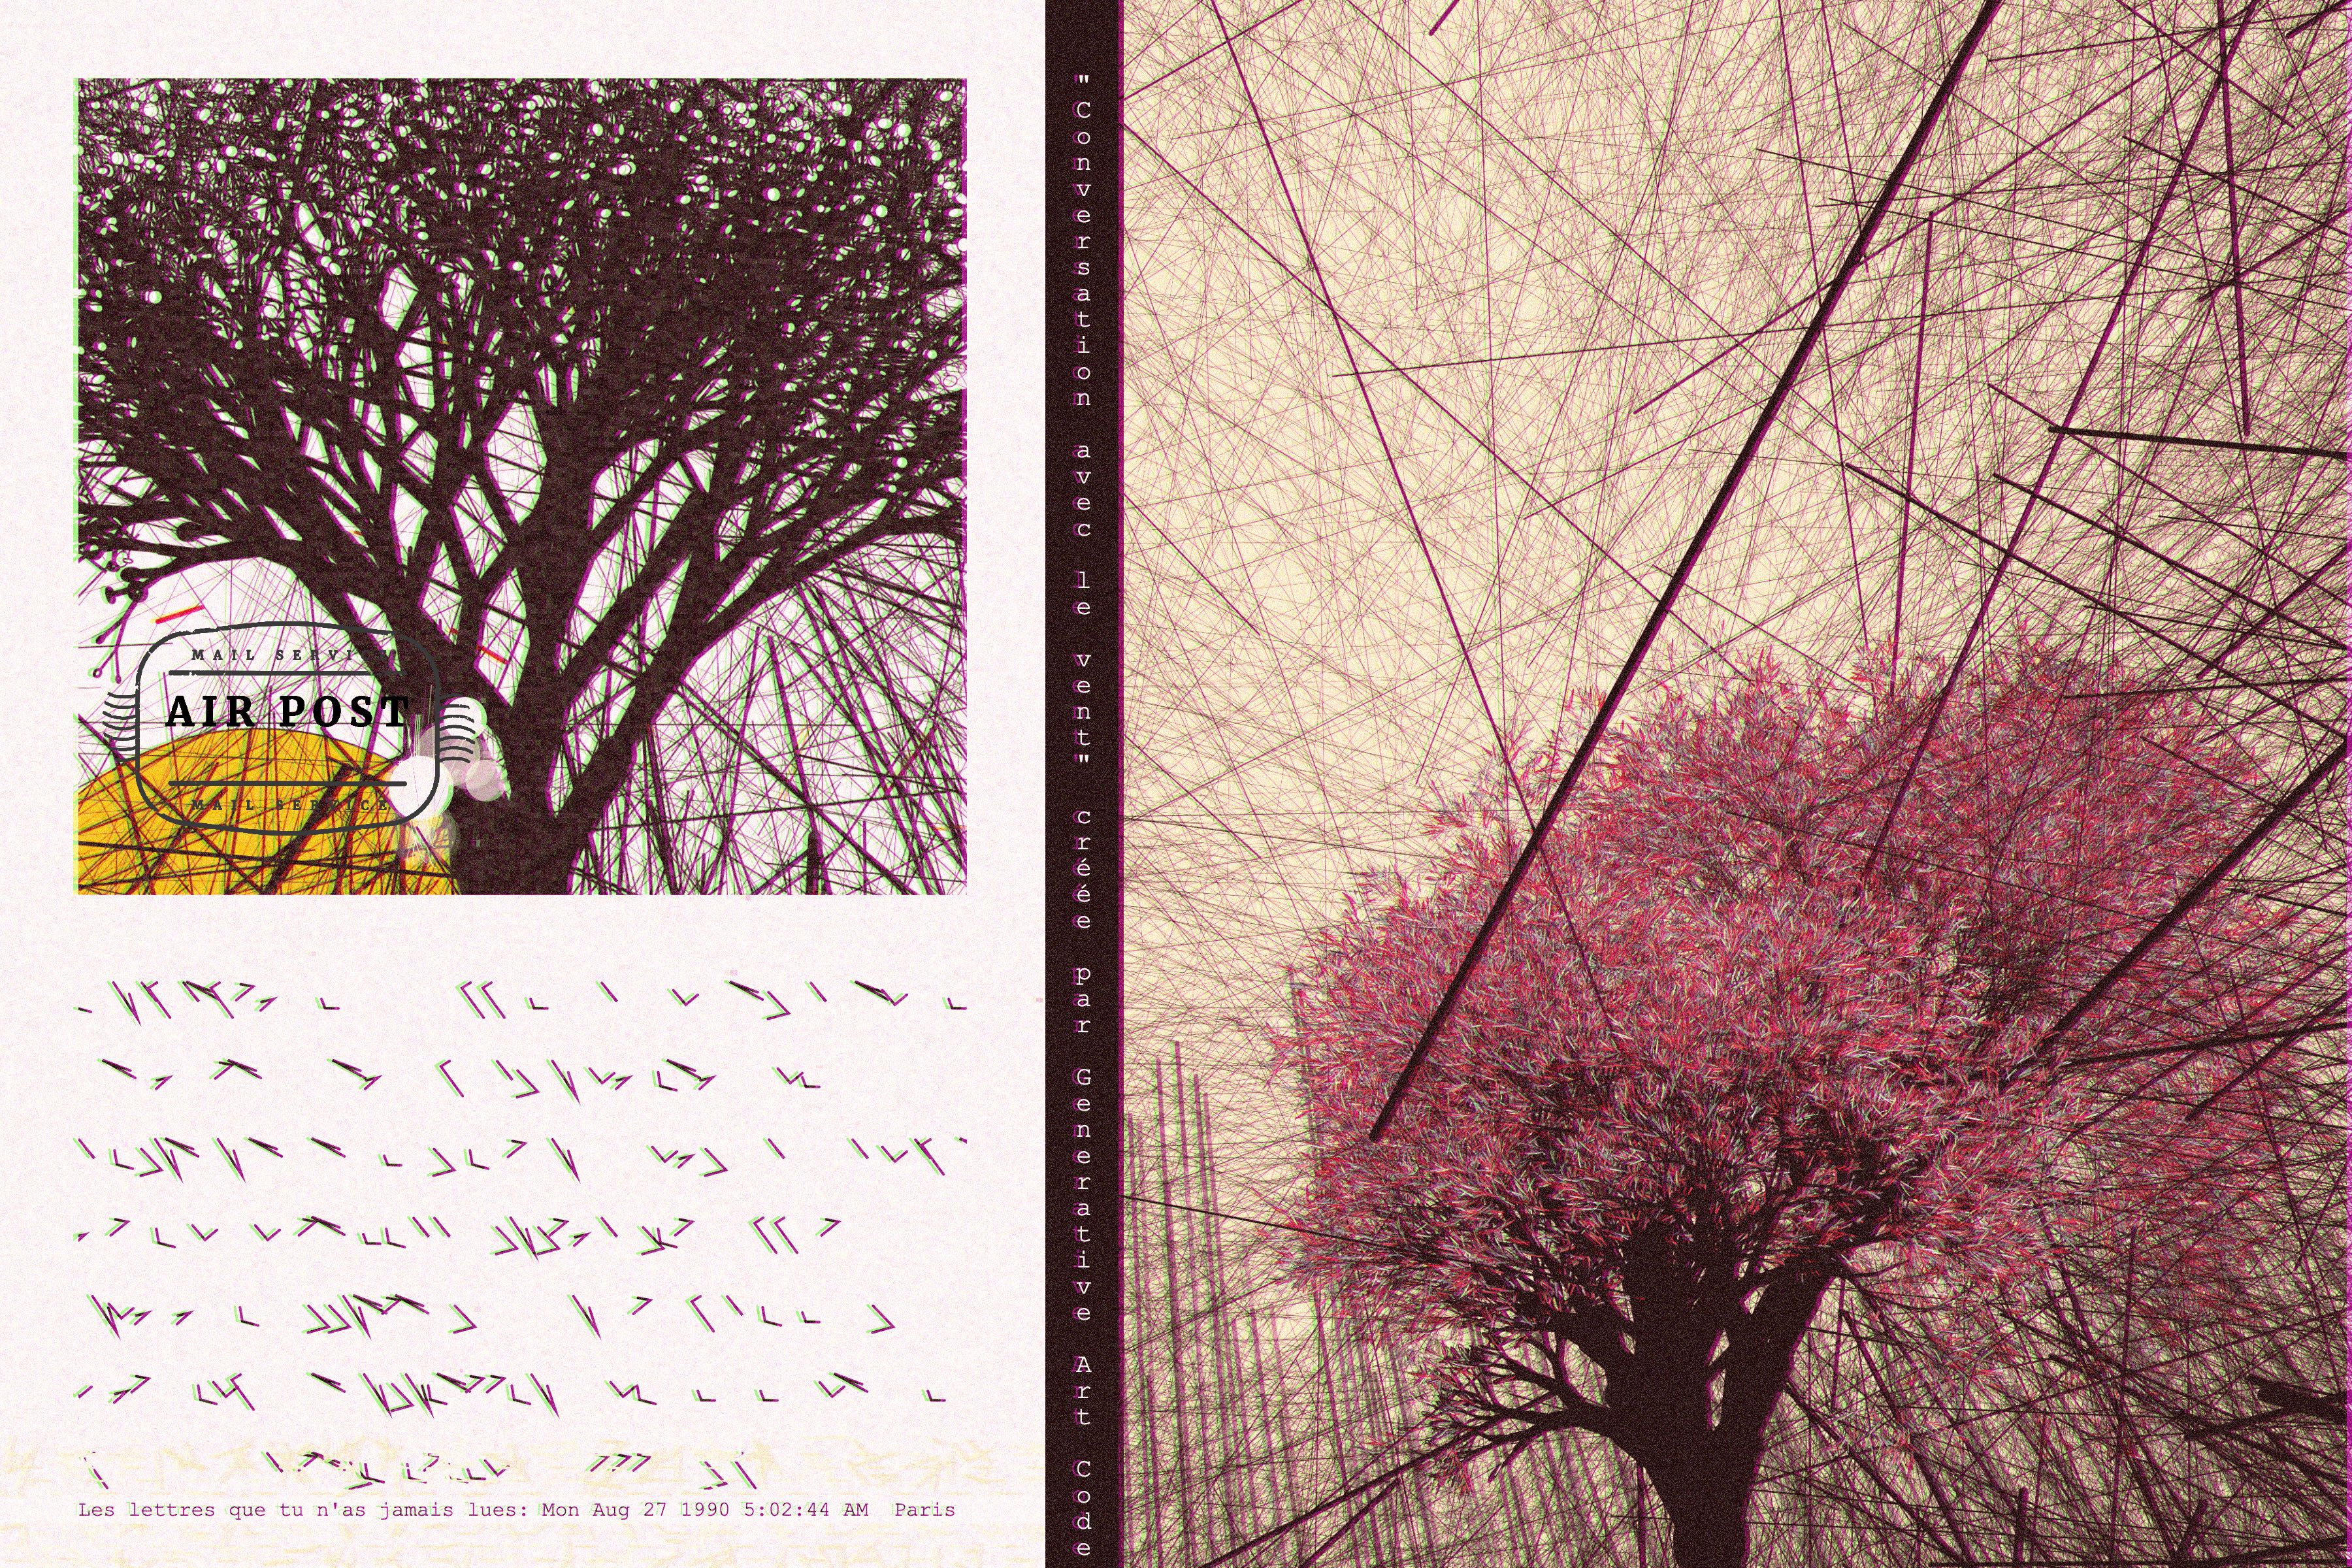 MAIL SERVICE
AIR POST
MAIL SERVICE
Les lettres que tu n'as jamais lues: Mon Aug 27 1990 5:02:44 AM Paris
"Conversation avec le vent" créée par Generative Art Code